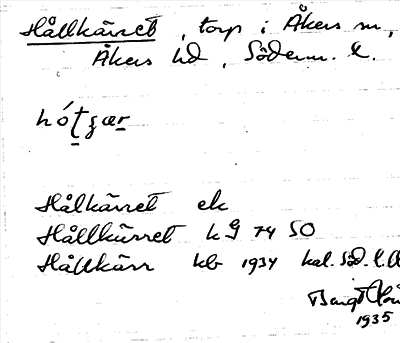 Hållkärret, torp i Åkers sn,
Åkers hd, Söderm. l.
Hålkärret ek
Hållkärret k 9 74 SO
Hållkärr kb 1934 kal. Söd. l.
Bengt
1935